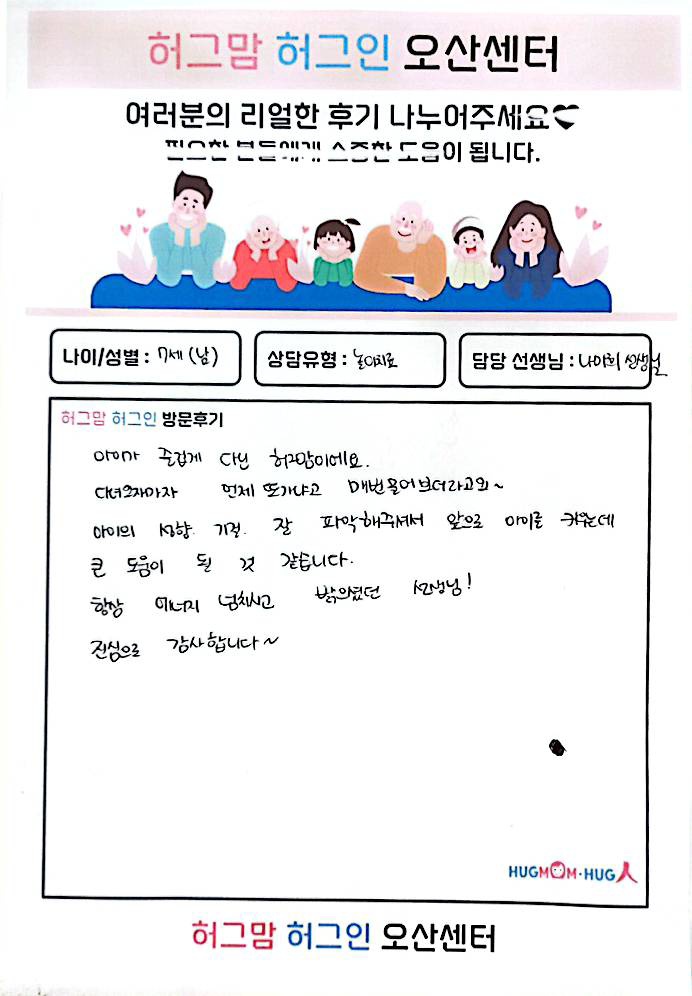 허그맘 허그인 오산센터
여러분의 리얼한 후기 나누어주세요
필요한 분들에게 소중한 도움이 됩니다.
나이/성별 : 7세 (남)
상담유형 : 놀이치료
담당 선생님 : 나아희 선생님
허그맘 허그인 방문후기
아이가 즐겁게 다닌 허그맘이에요.
다녀오자마자 언제 또가냐고 매번 물어보더라고요~
아이의 성향. 기질. 잘 파악해주셔서 앞으로 아이를 키우는데
큰 도움이 될 것 같습니다.
항상 에너지 넘치시고 밝으셨던 선생님!
진심으로 감사합니다~
HUGMOM·HUG人
허그맘 허그인 오산센터